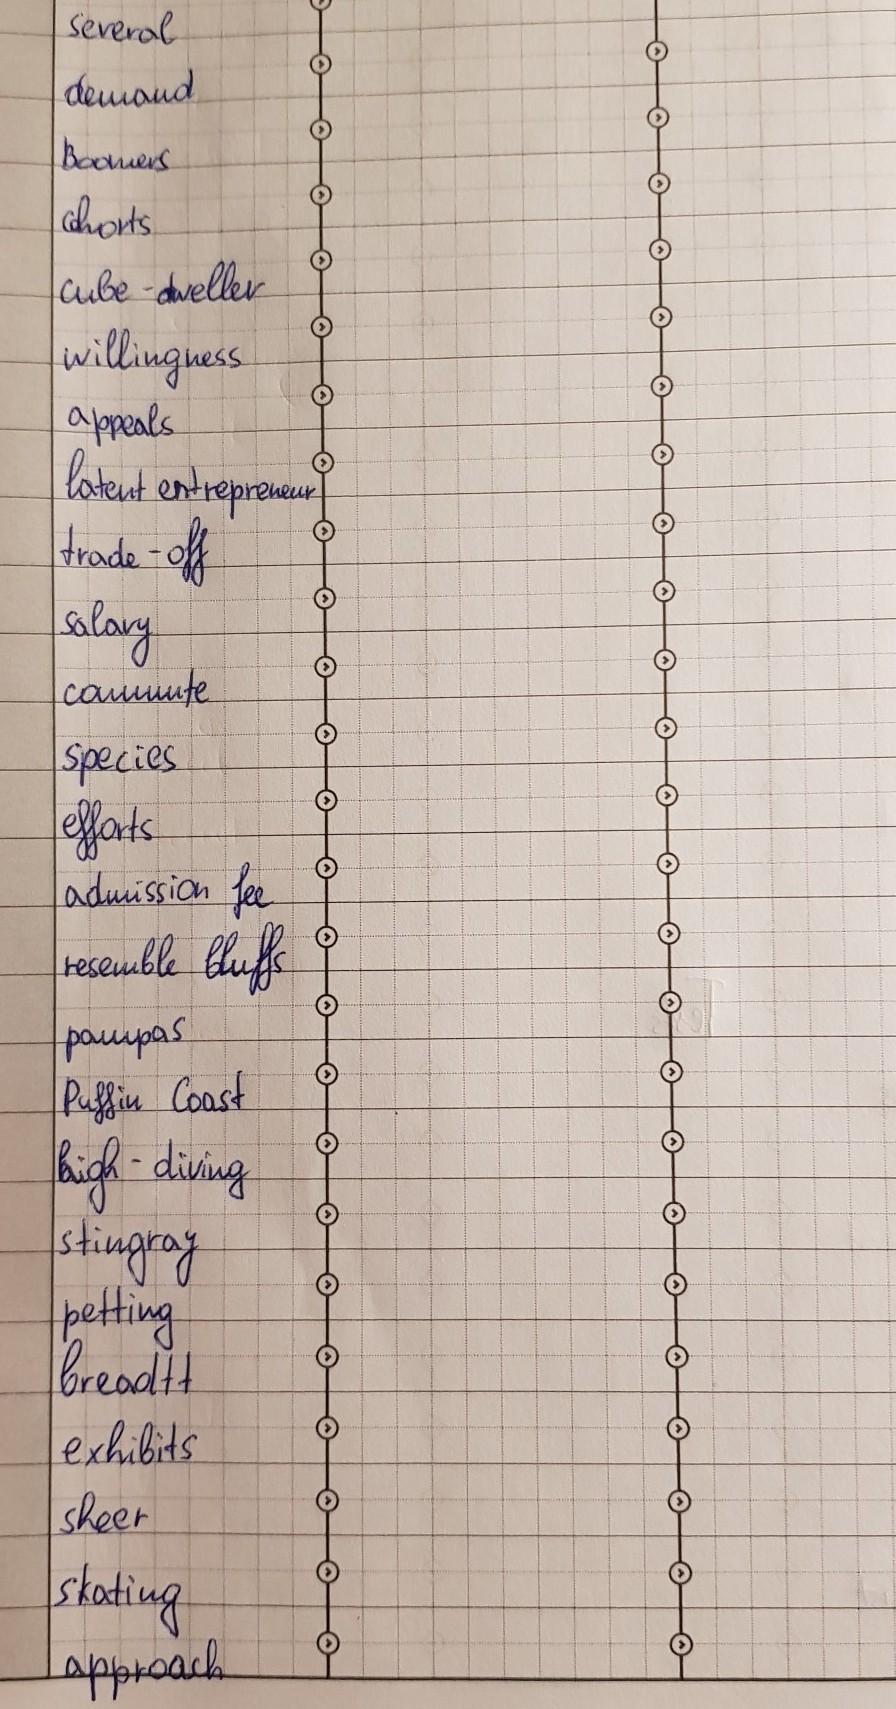 several
demand
Boomers
cohorts
cube-dweller
willingness
appeals
latent entrepreneur
trade-off
salary
commute
species
efforts
admission fee
resemble bluffs
pampas
Puffin Coast
high-diving
stingray
petting
breadtt
exhibits
sheer
skating
approach